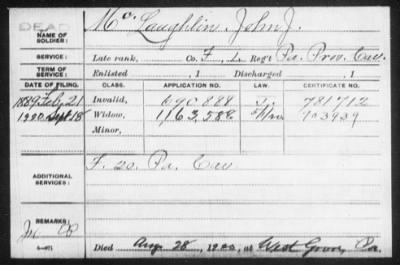 DEAD
NAME OF SOLDIER: McLaughlin, John J.
SERVICE: Late rank, Co. F, 2. Reg't Pa. Prov. Cav.
TERM OF SERVICE: Enlisted , 1 Discharged , 1
DATE OF FILING. CLASS. APPLICATION NO. LAW. CERTIFICATE NO.
1889 Feb. 21 Invalid, 690888 781712
1900 Sept 18 Widow, 1163,588 703939
Minor,
ADDITIONAL SERVICES: F. 20. Pa. Cav
REMARKS:
Died Aug. 28, 1900, at West Grove, Pa.